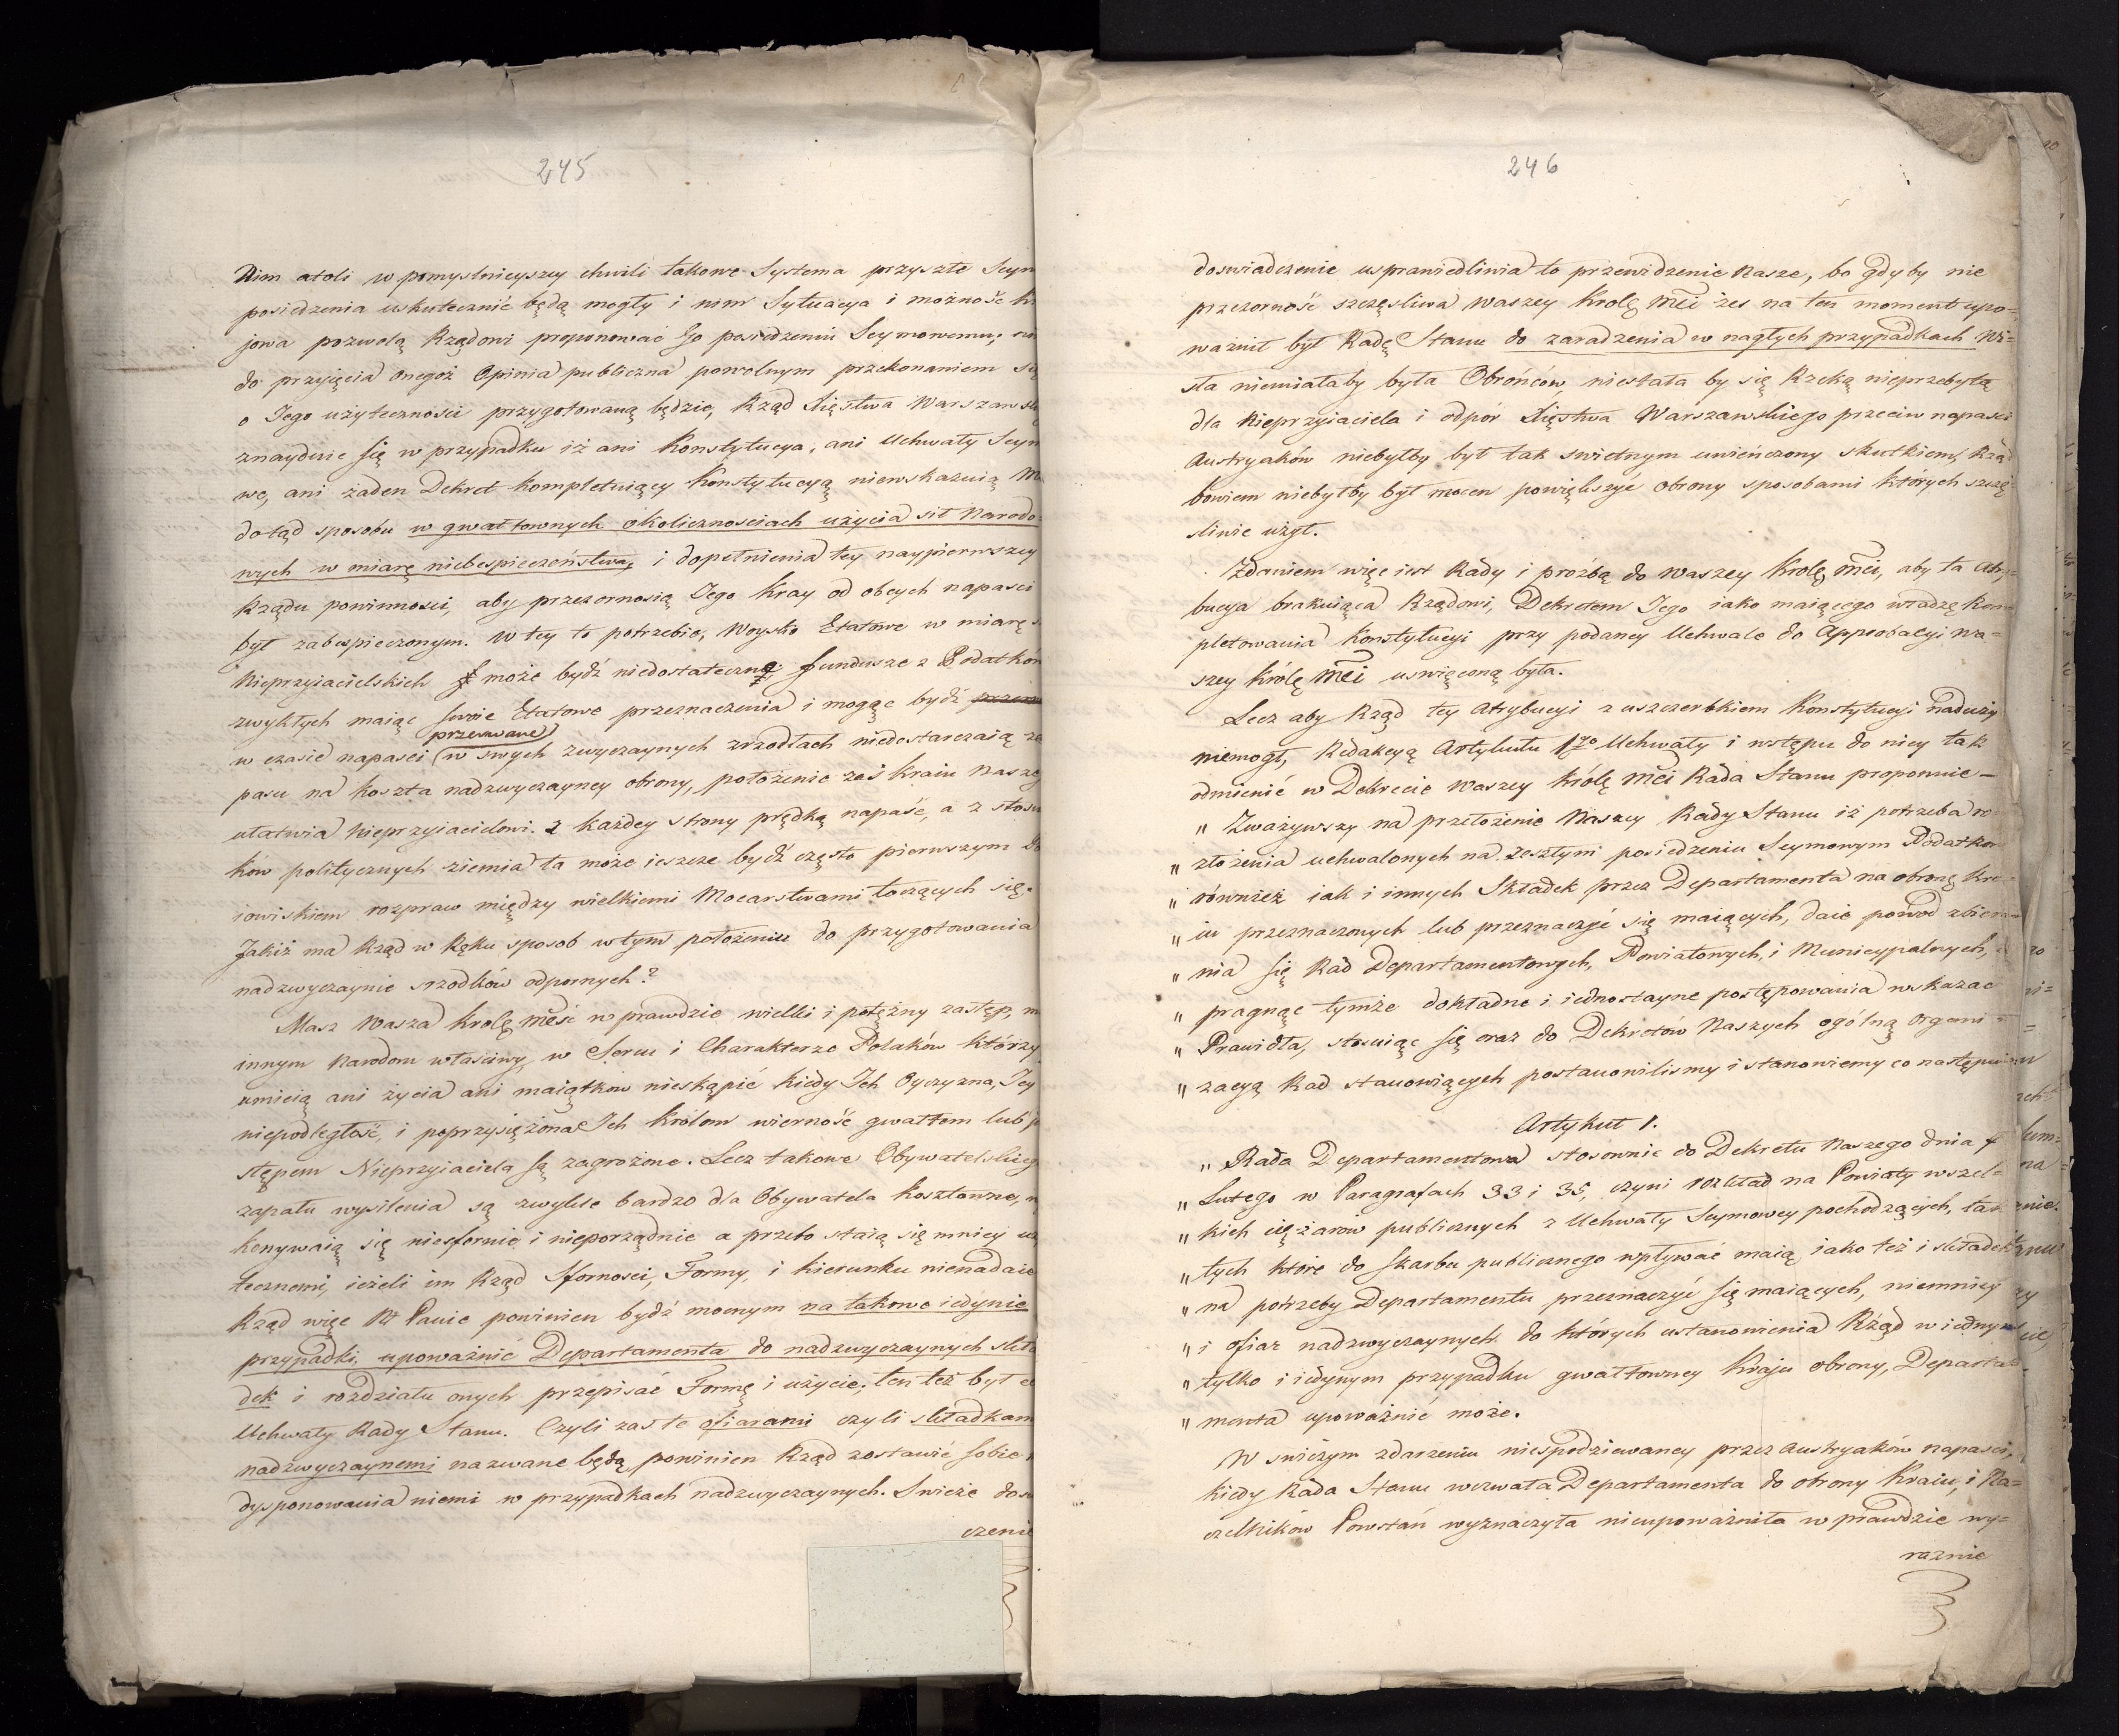 245
Nim atoli w pomyslnieyszey chwili takowe Systema przyszłe Seym
posiedzenia uskutecznić będą mogły i nim Sytuacya i możność kra
jowa pozwolą Rządowi proponować Go posiedzeniu Seymowemu;
do przyięcia onegoż Opinia publiczna powolnym przekonaniem się
o Jego użyteczności przygotowaną będzie, Rząd Xięstwa Warszaws
znayduie się w przypadku iż ani Konstytucya, ani Uchwały Seym
we, ani żaden Dekret kompletuiący Konstytucyą niewskazuią Mu
dotąd sposobu w gwałtownych okolicznosciach użycia sił Narodo-
wych w miarę niebespieczeństwa, i dopełnienia tey naypierwszey
Rządu powinnosci, aby przezornosią Jego kray od obcych napasci
był zabespieczonym. W tey to potrzebie, Woysko Etatowe w miarę
Nieprzyiacielskich może bydź niedostateczne, fundusze z Podatków
zwykłych maiąc swoie Etatowe przeznaczenia i mogąc bydź
przerwane
w czasie napasci w swych zwyczaynych zrzodłach niedostarczaią
pasu na koszta nadzwyczayney obrony, położenie zaś kraiu nasze
ułatwia Nieprzyiacielowi z każdey strony prędką napaść, a z stosu
ków politycznych ziemia ta może ieszcze bydź często pierwszym
iowiskiem rozpraw między wielkiemi Mocarstwami toczących się.
Jakiż ma Rząd w Ręku sposob w tym położeniu do przygotowania
nadzwyczaynie srzodków odpornych?
Masz Wasza Krolę Mść w prawdzie wielki i potężny zastęp,
innym Narodom własciwy, w Sercu i Charakterze Polaków którzy
umieią ani życia ani maiątków nieskąpić kiedy Ich Oyczyzna, Jey
niepodległość, i poprzysiężona Ich Królom wierność gwałtem lub
stępem Nieprzyiaciela są zagrożone. Lecz takowe Obywatelskieg
zapału wysilenia są zwykle bardzo dla Obywatela kosztowne,
konywaią się niesfornie i nieporządnie a przeto staią się mniey
tecznemi, ieżeli im Rząd Sforności, Formy, i kierunku nienadaie
Rząd więc N Panie powinien bydź mocnym na takowe iedynie
przypadki, upoważnić Departamenta do nadzwyczaynych skła
dek i rozdziału onych przepisać Formę i użycie; ten też był
Uchwały Rady Stanu. Czyli zas te ofiarami czyli składkam
nadzwyczaynemi nazwane będą, powinien Rząd zostawić sobie
dysponowania niemi w przypadkach nadzwyczaynych. Swieże dos
czenie
246
doswiadczenie usprawiedliwia to przewidzenie Nasze, bo gdyby nie
przezorność szczęsliwa Waszey Krolę Mci żes na ten moment upo-
ważnił był Radę Stanu do zaradzenia w nagłych przypadkach Wi-
sła niemiałaby była Obrońców, niestała by się Rzeką nieprzebytą
dla Nieprzyiaciela i odpór Xięstwa Warszawskiego przeciw napasci
Austryaków niebyłby był tak swietnym uwieńczony skutkiem, Rząd
bowiem niebyłby był mocen powiększyć obrony sposobami których szczę-
sliwie użył.
Zdaniem więc iest Rady i prożbą do Waszey Krolę Mci, aby ta Atry-
bucya brakuiąca Rządowi, Dekretem Jego iako maiącego władzę kom
pletowania Konstytucyi przy podaney Uchwale do Approbacyi Wa-
szey Królę Mci uswięconą była.
Lecz aby Rząd tey Atrybucyi z uszczerbkiem Konstytucyi nadużyć
niemogł, Redakcyą Artykułu 1go Uchwały i wstępu do niey tak
odmienić w Dekrecie Waszey Królę Mci Rada Stanu proponuie —
" Zważywszy na przełożenie Naszey Rady Stanu iż potrzeba ro
" złożenia uchwalonych na zeszłym posiedzeniu Seymowym Podatkow
" również iak i innych Składek przez Departamenta na obronę kra-
" iu przeznaczonych lub przeznaczyć się maiących, daie powod zbiera-
" nia się Rad Departamentowych, Powiatowych, i Municypalnych,
" pragnąc tymże dokładne i iednostayne postępowania wskazać
" Prawidła, stosuiąc się oraz do Dekretów Naszych ogólną Organi-
" zacyą Rad stanowiących postanowilismy i stanowiemy co następuie
Artykuł 1.
" Rada Departamentowa stosownie do Dekretu Naszego dnia 7
" Lutego w Paragrafach 33 i 35, czyni rozkład na Powiaty wszel-
" kich cię-żarów publicznych z Uchwały Seymowey pochodzących, tak
" tych które do Skarbu publicznego wpływać maią iako też i składek
" na potrzeby Departamentu przeznaczyć się maiących, niemniey
" i ofiar nadzwyczaynych do których ustanowienia Rząd w iednym
" tylko i iedynym przypadku gwałtowney Kraju obrony, Departa-
" menta upoważnić może.
W swieżym zdarzeniu niespodziewaney przez Austryaków napasci,
kiedy Rada Stanu wezwała Departamenta do obrony Kraiu, i Na-
czelników Powstań wyznaczyła nieupoważniła w prawdzie wy-
raznie